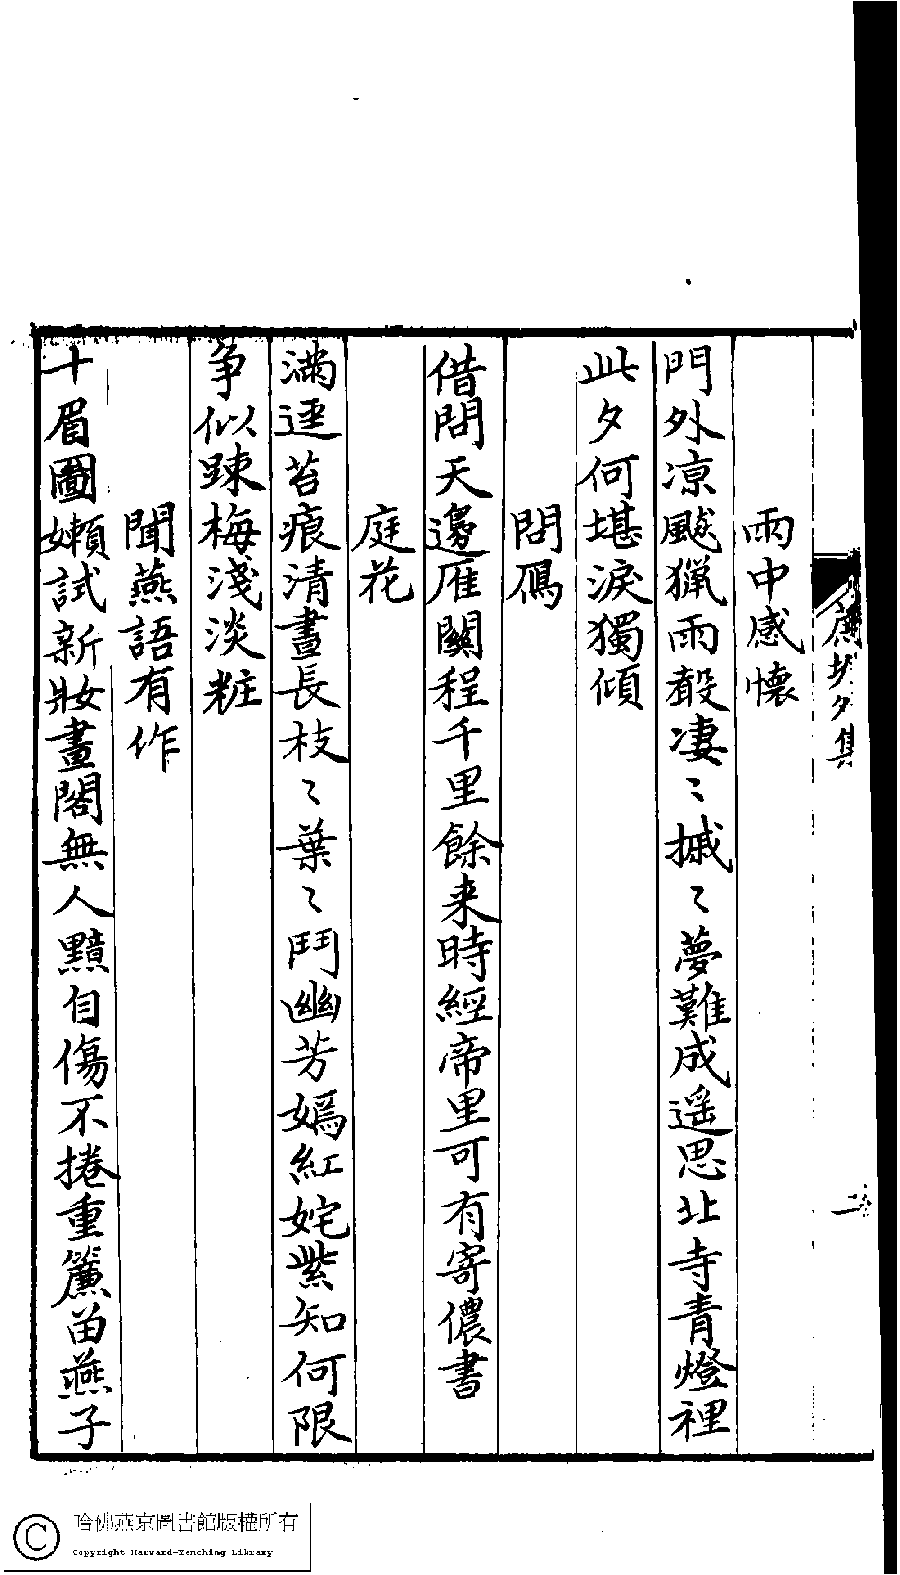 外集
二
雨中感懷
門外凉颷獵雨聲凄〻摵〻夢難成遥思北寺青燈裡
此夕何堪淚獨傾
問鴈
借問天邊雁關程千里餘来時經帝里可有寄儂書
庭花
滿逕苔痕清晝長枝〻葉〻鬥幽芳嫣紅姹紫知何限
争似踈梅淺淡粧
聞燕語有作
十眉圖嬾試新妝畫閣無人黯自傷不捲重簾留燕子
哈佛燕京圖書館版權所有
Copyright Harvard-Yenching Library